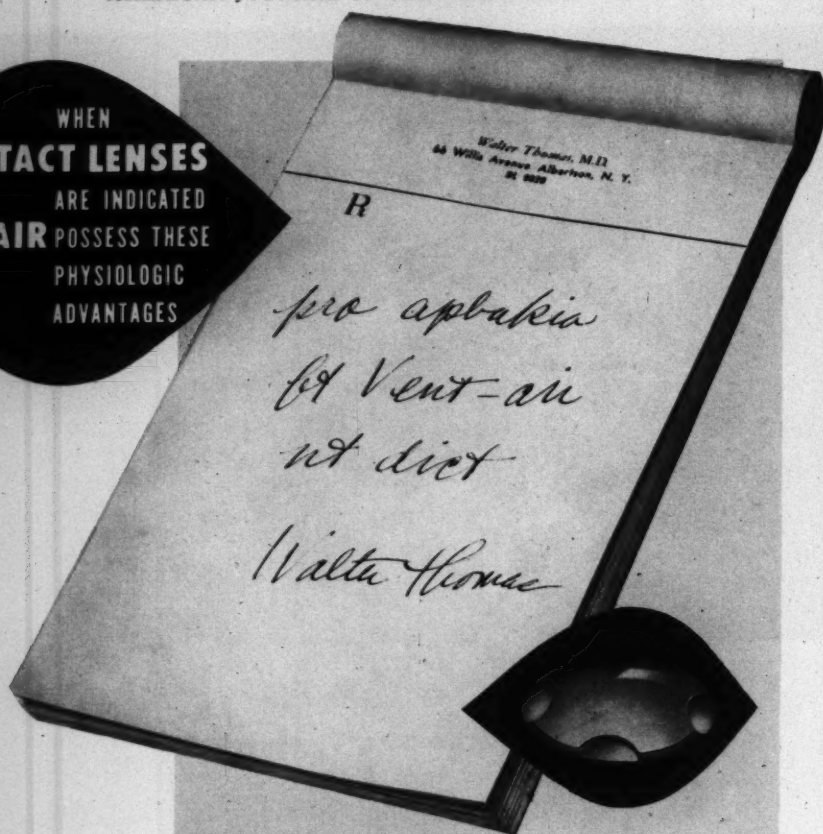 WHEN
TACT LENSES
ARE INDICATED
AIR POSSESS THESE
PHYSIOLOGIC
ADVANTAGES
Walter Thomas, M.D.
Willis Avenue Albertson, N. Y.
R
pro aphakia
Vent-air
ut dict
Walter Thomas